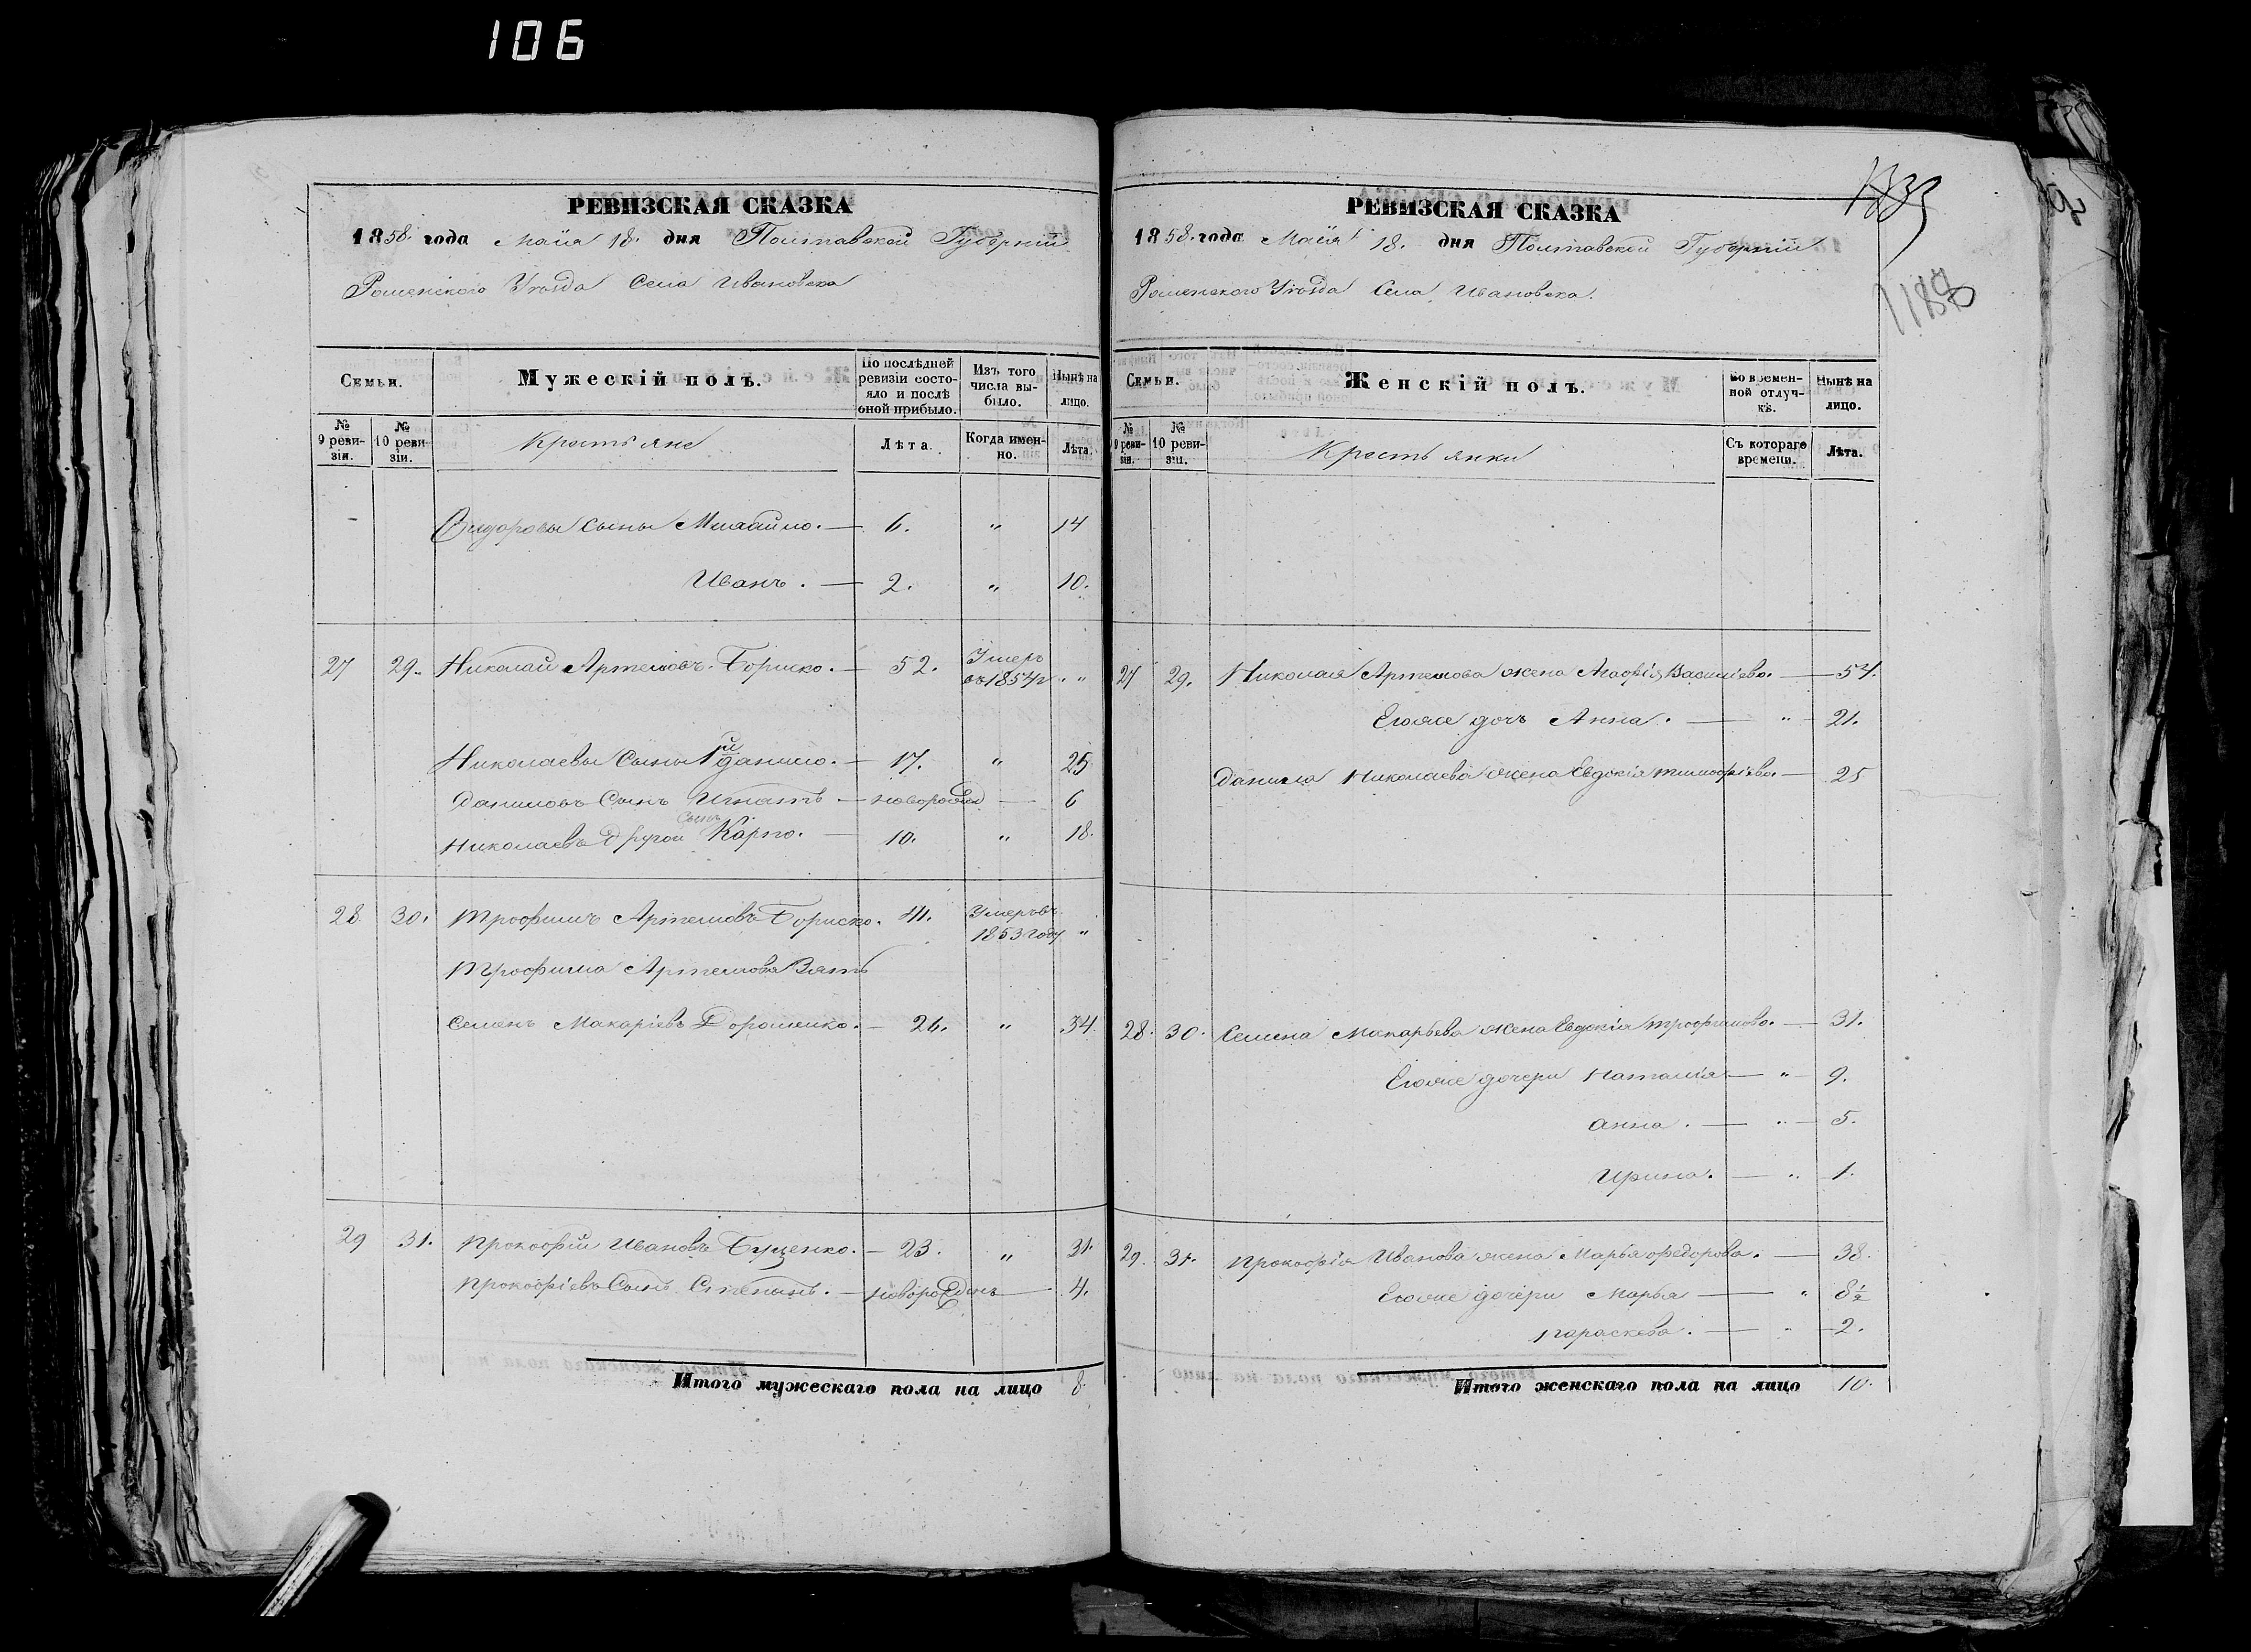 106
РЕВИЗСКАЯ СКАЗКА
1858. года Маія 18. дня Полтавской Губерніи
Роменского Уѣзда Села Ивановска
Семьи.
Мужескій полъ.
По послѣдней ревизіи состояло и послѣ оной прибыло.
Изъ того числа выбыло.
Нынѣ на лицо.
№ 9 ревизіи.
№ 10 ревизіи.
Крестьяне
Лѣта.
Когда именно.
Лѣта.
Сидоровы Сыны Михайло. — 6. " 14
Иванъ. — 2. " 10.
27 29. Николай Артемовъ Бориско. — 52. Умеръ въ 1854 г. "
Николаевы Сыны 1й Данило. — 17. " 25
Даниловъ Сынъ Игнатъ — новорожд — 6
Сынъ
Николаевъ Другой Карпо. — 10. " 18.
28 30. Трофимъ Артемовъ Бориско. 41. Умеръ въ 1853 году "
Трофима Артемова Зять
Семенъ Макаріевъ Дорошенко. — 26. " 34.
29 31. Прокофій Ивановъ Буценко. — 23. " 31.
Прокофіевъ Сынъ Степанъ. — новорожденъ — 4.
Итого мужескаго пола на лицо 8.
РЕВИЗСКАЯ СКАЗКА
1858. года Маія 18. дня Полтавской Губерніи
Роменского Уѣзда Села Ивановска.
1188
Семьи.
Женскій полъ.
Во временной отлучкѣ.
Нынѣ на лицо.
№ 9 ревизіи.
№ 10 ревизіи.
Крестьянки
Съ котораго времени.
Лѣта.
27 29. Николая Артемова жена Агафія Василіева. — 54.
Егоже дочь Анна. — " — 21.
Данила Николаева жена Евдокія Тимофѣева. — 25
28. 30. Семена Макарьева жена Евдокія Трофимова. — 31.
Егоже дочери Наталія — " — 9.
Анна. — " — 5.
Ирина. — " — 1.
29. 31. Прокофія Иванова жена Марья Федорова. — 38.
Егоже дочери Марья — " 8½
Параскева. — " — 2.
Итого женскаго пола на лицо 10.